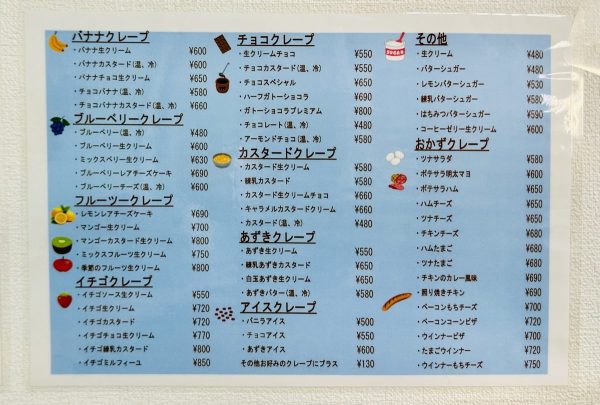 バナナクレープ
・バナナ生クリーム ¥600
・バナナカスタード(温、冷) ¥600
・バナナチョコ生クリーム ¥650
・チョコバナナ(温、冷) ¥580
・チョコバナナカスタード(温、冷) ¥660
ブルーベリークレープ
・ブルーベリー(温、冷) ¥480
・ブルーベリー生クリーム ¥600
・ミックスベリー生クリーム ¥630
・ブルーベリーレアチーズケーキ ¥690
・ブルーベリーチーズ(温、冷) ¥600
フルーツクレープ
・レモンレアチーズケーキ ¥690
・マンゴー生クリーム ¥700
・マンゴーカスタード生クリーム ¥800
・ミックスフルーツ生クリーム ¥750
・季節のフルーツ生クリーム ¥800
イチゴクレープ
・イチゴソース生クリーム ¥550
・イチゴ生クリーム ¥720
・イチゴカスタード ¥720
・イチゴチョコ生クリーム ¥770
・イチゴ練乳カスタード ¥800
・イチゴミルフィーユ ¥850
チョコクレープ
・生クリームチョコ ¥550
・チョコカスタード(温、冷) ¥550
・チョコスペシャル ¥650
・ハーフガトーショコラ ¥690
・ガトーショコラプレミアム ¥800
・チョコレート(温、冷) ¥480
・アーモンドチョコ(温、冷) ¥580
カスタードクレープ
・カスタード生クリーム ¥580
・練乳カスタード ¥580
・カスタード生クリームチョコ ¥660
・キャラメルカスタードクリーム ¥660
・カスタード(温、冷) ¥480
あずきクレープ
・あずき生クリーム ¥550
・練乳あずきカスタード ¥650
・白玉あずき生クリーム ¥650
・あずきバター(温、冷) ¥580
アイスクレープ
・バニラアイス ¥500
・チョコアイス ¥550
・あずきアイス ¥600
その他お好みのクレープにプラス ¥130
その他
・生クリーム ¥480
・バターシュガー ¥480
・レモンバターシュガー ¥530
・練乳バターシュガー ¥580
・はちみつバターシュガー ¥580
・コーヒーゼリー生クリーム ¥600
おかずクレープ
・ツナサラダ ¥580
・ポテサラ明太マヨ ¥600
・ポテサラハム ¥650
・ハムチーズ ¥650
・ツナチーズ ¥650
・チキンチーズ ¥680
・ハムたまご ¥680
・ツナたまご ¥680
・チキンのカレー風味 ¥690
・照り焼きチキン ¥690
・ベーコンもちチーズ ¥700
・ベーコンコーンピザ ¥700
・たまごウインナー ¥720
・ウインナーもちチーズ ¥750